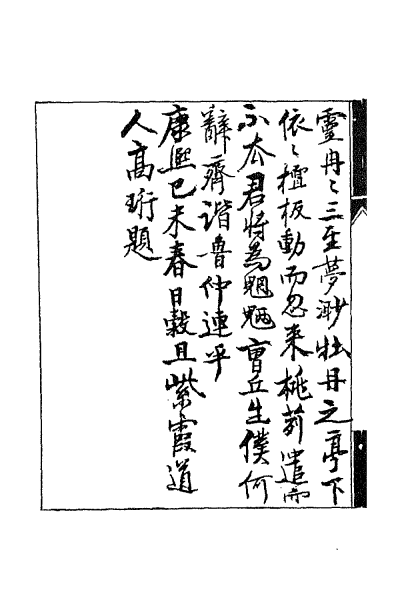 靈冉〻三生夢渺牡丹之亭下
依〻檀板動而忽来桃茢遣而
不去君將為魍魎曹丘生僕何
辭齊諧魯仲連乎
康熙己未春日穀旦紫霞道
人高珩題